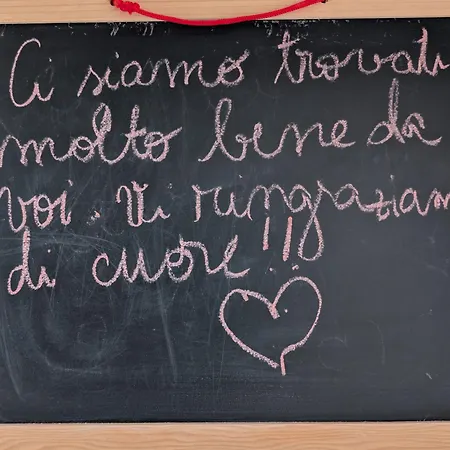 Ci siamo trovati
molto bene da
voi. Vi ringraziam
di cuore!!